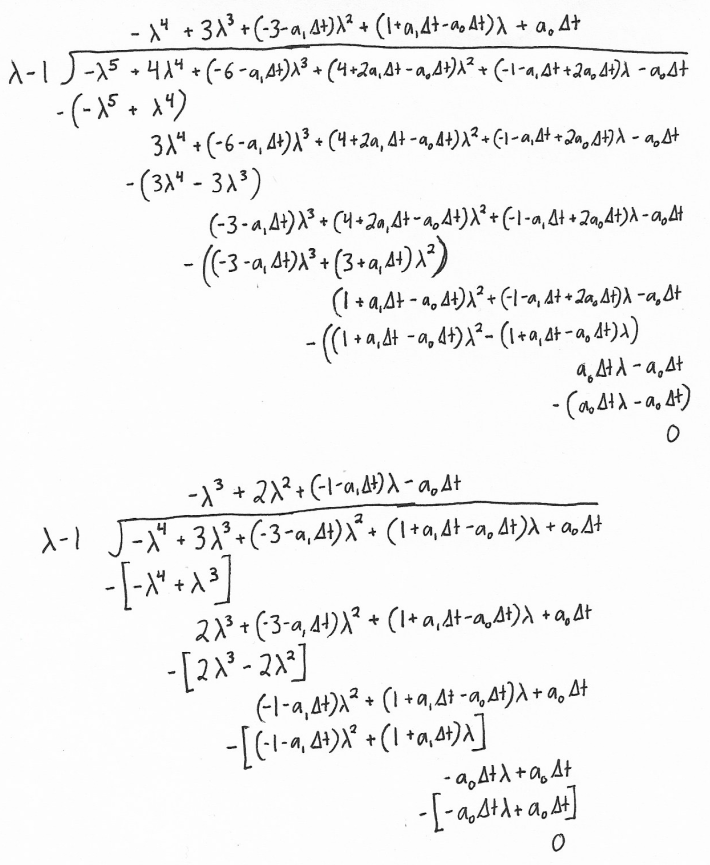 -λ⁴ + 3λ³ + (-3-a₁Δt)λ² + (1+a₁Δt-a₀Δt)λ + a₀Δt
λ-1 ) -λ⁵ + 4λ⁴ + (-6-a₁Δt)λ³ + (4+2a₁Δt-a₀Δt)λ² + (-1-a₁Δt+2a₀Δt)λ - a₀Δt
-(-λ⁵ + λ⁴)
3λ⁴ + (-6-a₁Δt)λ³ + (4+2a₁Δt-a₀Δt)λ² + (-1-a₁Δt+2a₀Δt)λ - a₀Δt
-(3λ⁴ - 3λ³)
(-3-a₁Δt)λ³ + (4+2a₁Δt-a₀Δt)λ² + (-1-a₁Δt+2a₀Δt)λ - a₀Δt
-((-3-a₁Δt)λ³ + (3+a₁Δt)λ²)
(1+a₁Δt-a₀Δt)λ² + (-1-a₁Δt+2a₀Δt)λ - a₀Δt
-((1+a₁Δt-a₀Δt)λ² - (1+a₁Δt-a₀Δt)λ)
a₀Δtλ - a₀Δt
-(a₀Δtλ - a₀Δt)
0
-λ³ + 2λ² + (-1-a₁Δt)λ - a₀Δt
λ-1 ) -λ⁴ + 3λ³ + (-3-a₁Δt)λ² + (1+a₁Δt-a₀Δt)λ + a₀Δt
-[-λ⁴ + λ³]
2λ³ + (-3-a₁Δt)λ² + (1+a₁Δt-a₀Δt)λ + a₀Δt
-[2λ³ - 2λ²]
(-1-a₁Δt)λ² + (1+a₁Δt-a₀Δt)λ + a₀Δt
-[(-1-a₁Δt)λ² + (1+a₁Δt)λ]
-a₀Δtλ + a₀Δt
-[-a₀Δtλ + a₀Δt]
0